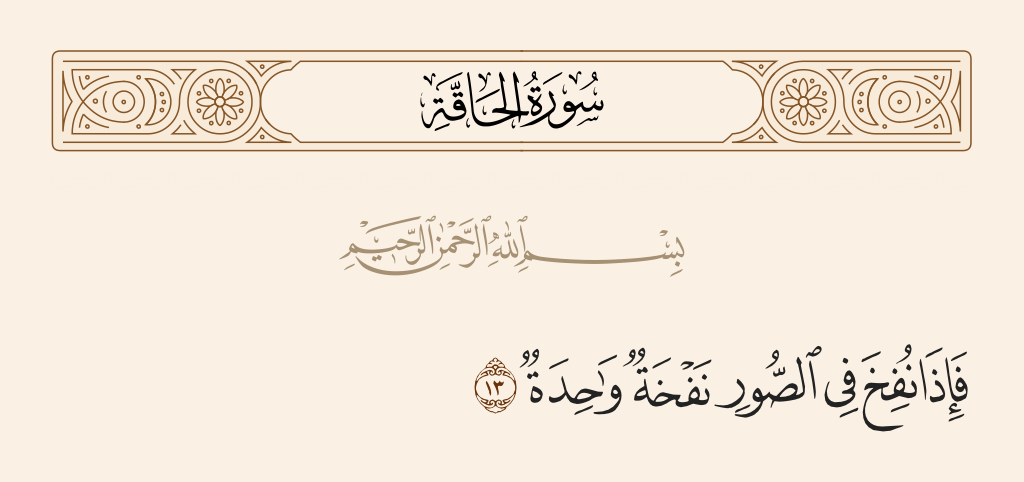 سُورَةُ الحَاقَّةِ
بِسْمِ ٱللَّهِ ٱلرَّحْمَٰنِ ٱلرَّحِيمِ
فَإِذَا نُفِخَ فِى ٱلصُّورِ نَفْخَةٌ وَٰحِدَةٌ ١٣